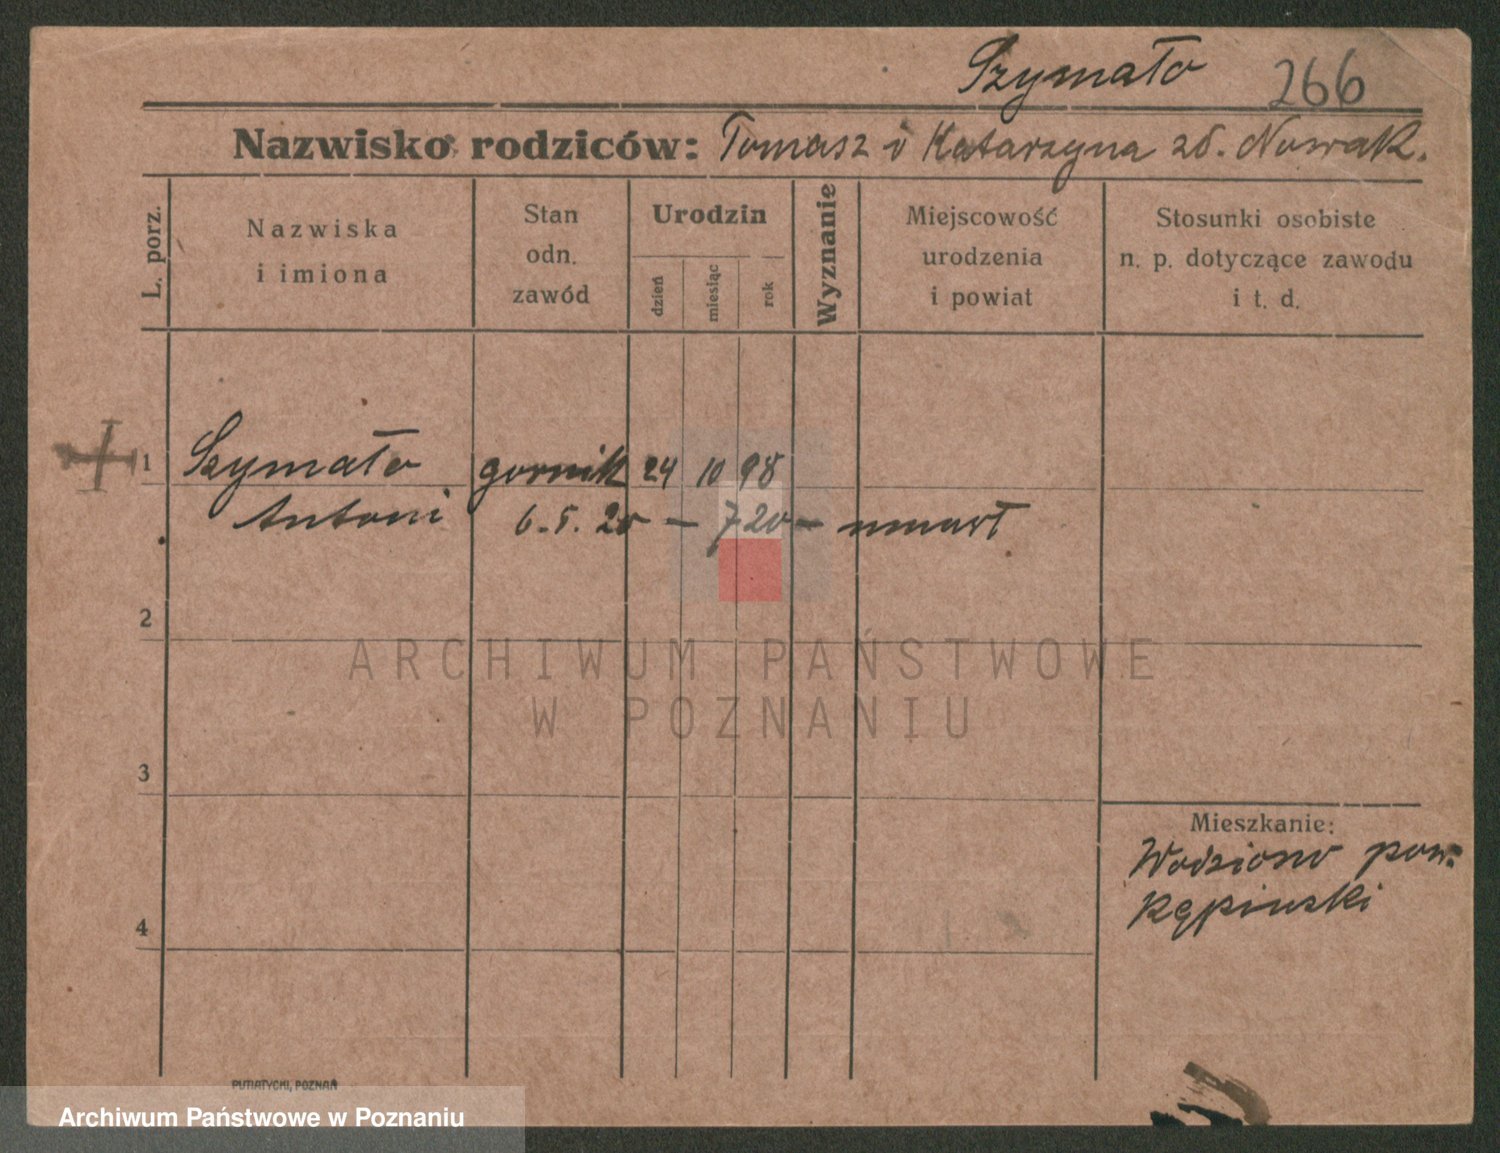 Szymało 266
Nazwisko rodziców: Tomasz i Katarzyna zd. Nowak.
L. porz.
Nazwiska
i imiona
Stan
odn.
zawód
Urodzin
dzień
miesiąc
rok
Wyznanie
Miejscowość
urodzenia
i powiat
Stosunki osobiste
n. p. dotyczące zawodu
i t. d.
1 Szymało gornik 24 10 98
Antoni 6.5.20 – 7 20 – umarł
2
ARCHIWUM PAŃSTWOWE
W POZNANIU
3
Mieszkanie:
Wodziono pow.
Kępinski
4
PUTIATYCKI, POZNAŃ
Archiwum Państwowe w Poznaniu